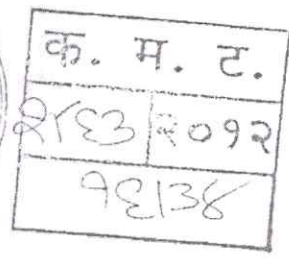 क. म. ट.
२४६३ २०१२
१६।३४